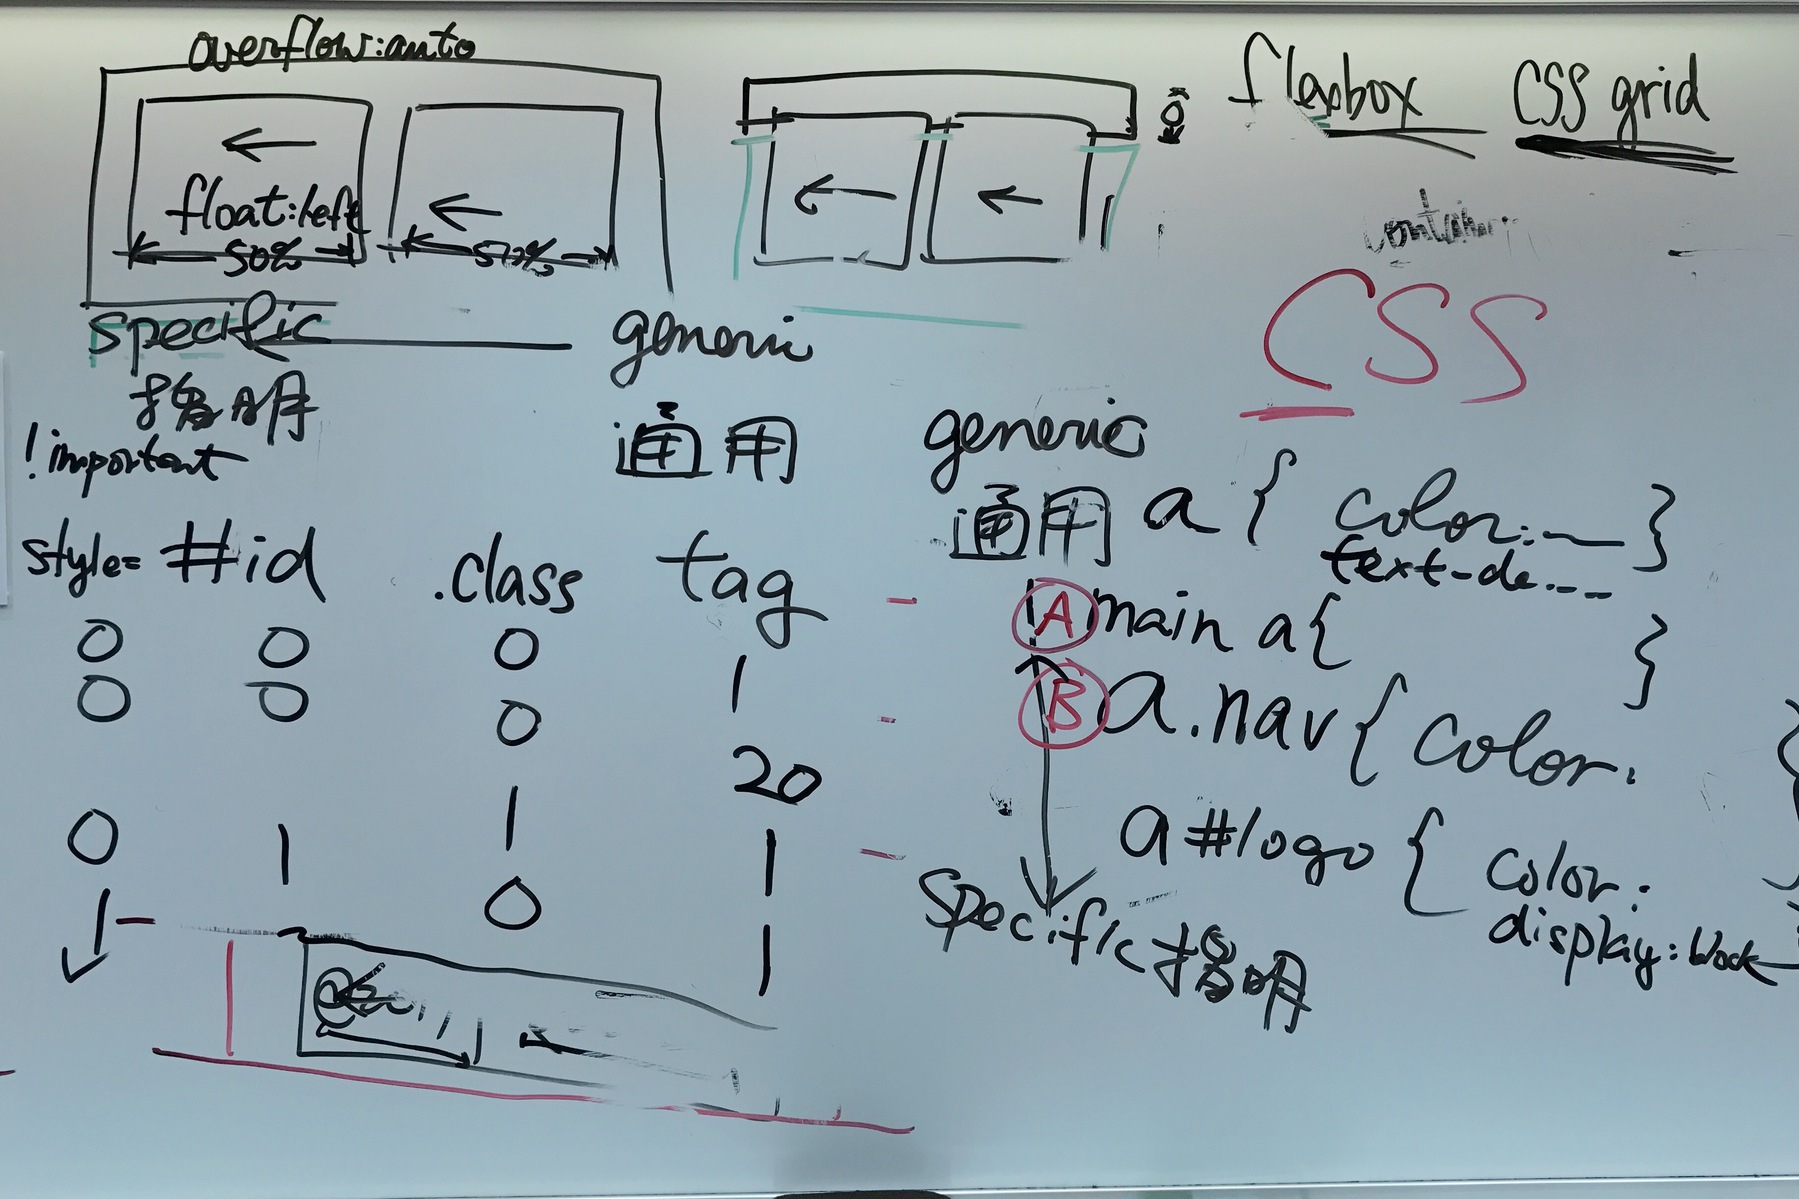 overflow:auto
float:left
50%
50%
flexbox
CSS grid
container
CSS
specific
generic
指明
通用
!important
style=
#id
.class
tag
0 0 0 1
0 0 0 20
0 1 1 1
0 1
generic
通用
a { color: }
text-de...
A main a{ }
B a.nav{ color: }
a #logo { color:
display:block
specific 指明